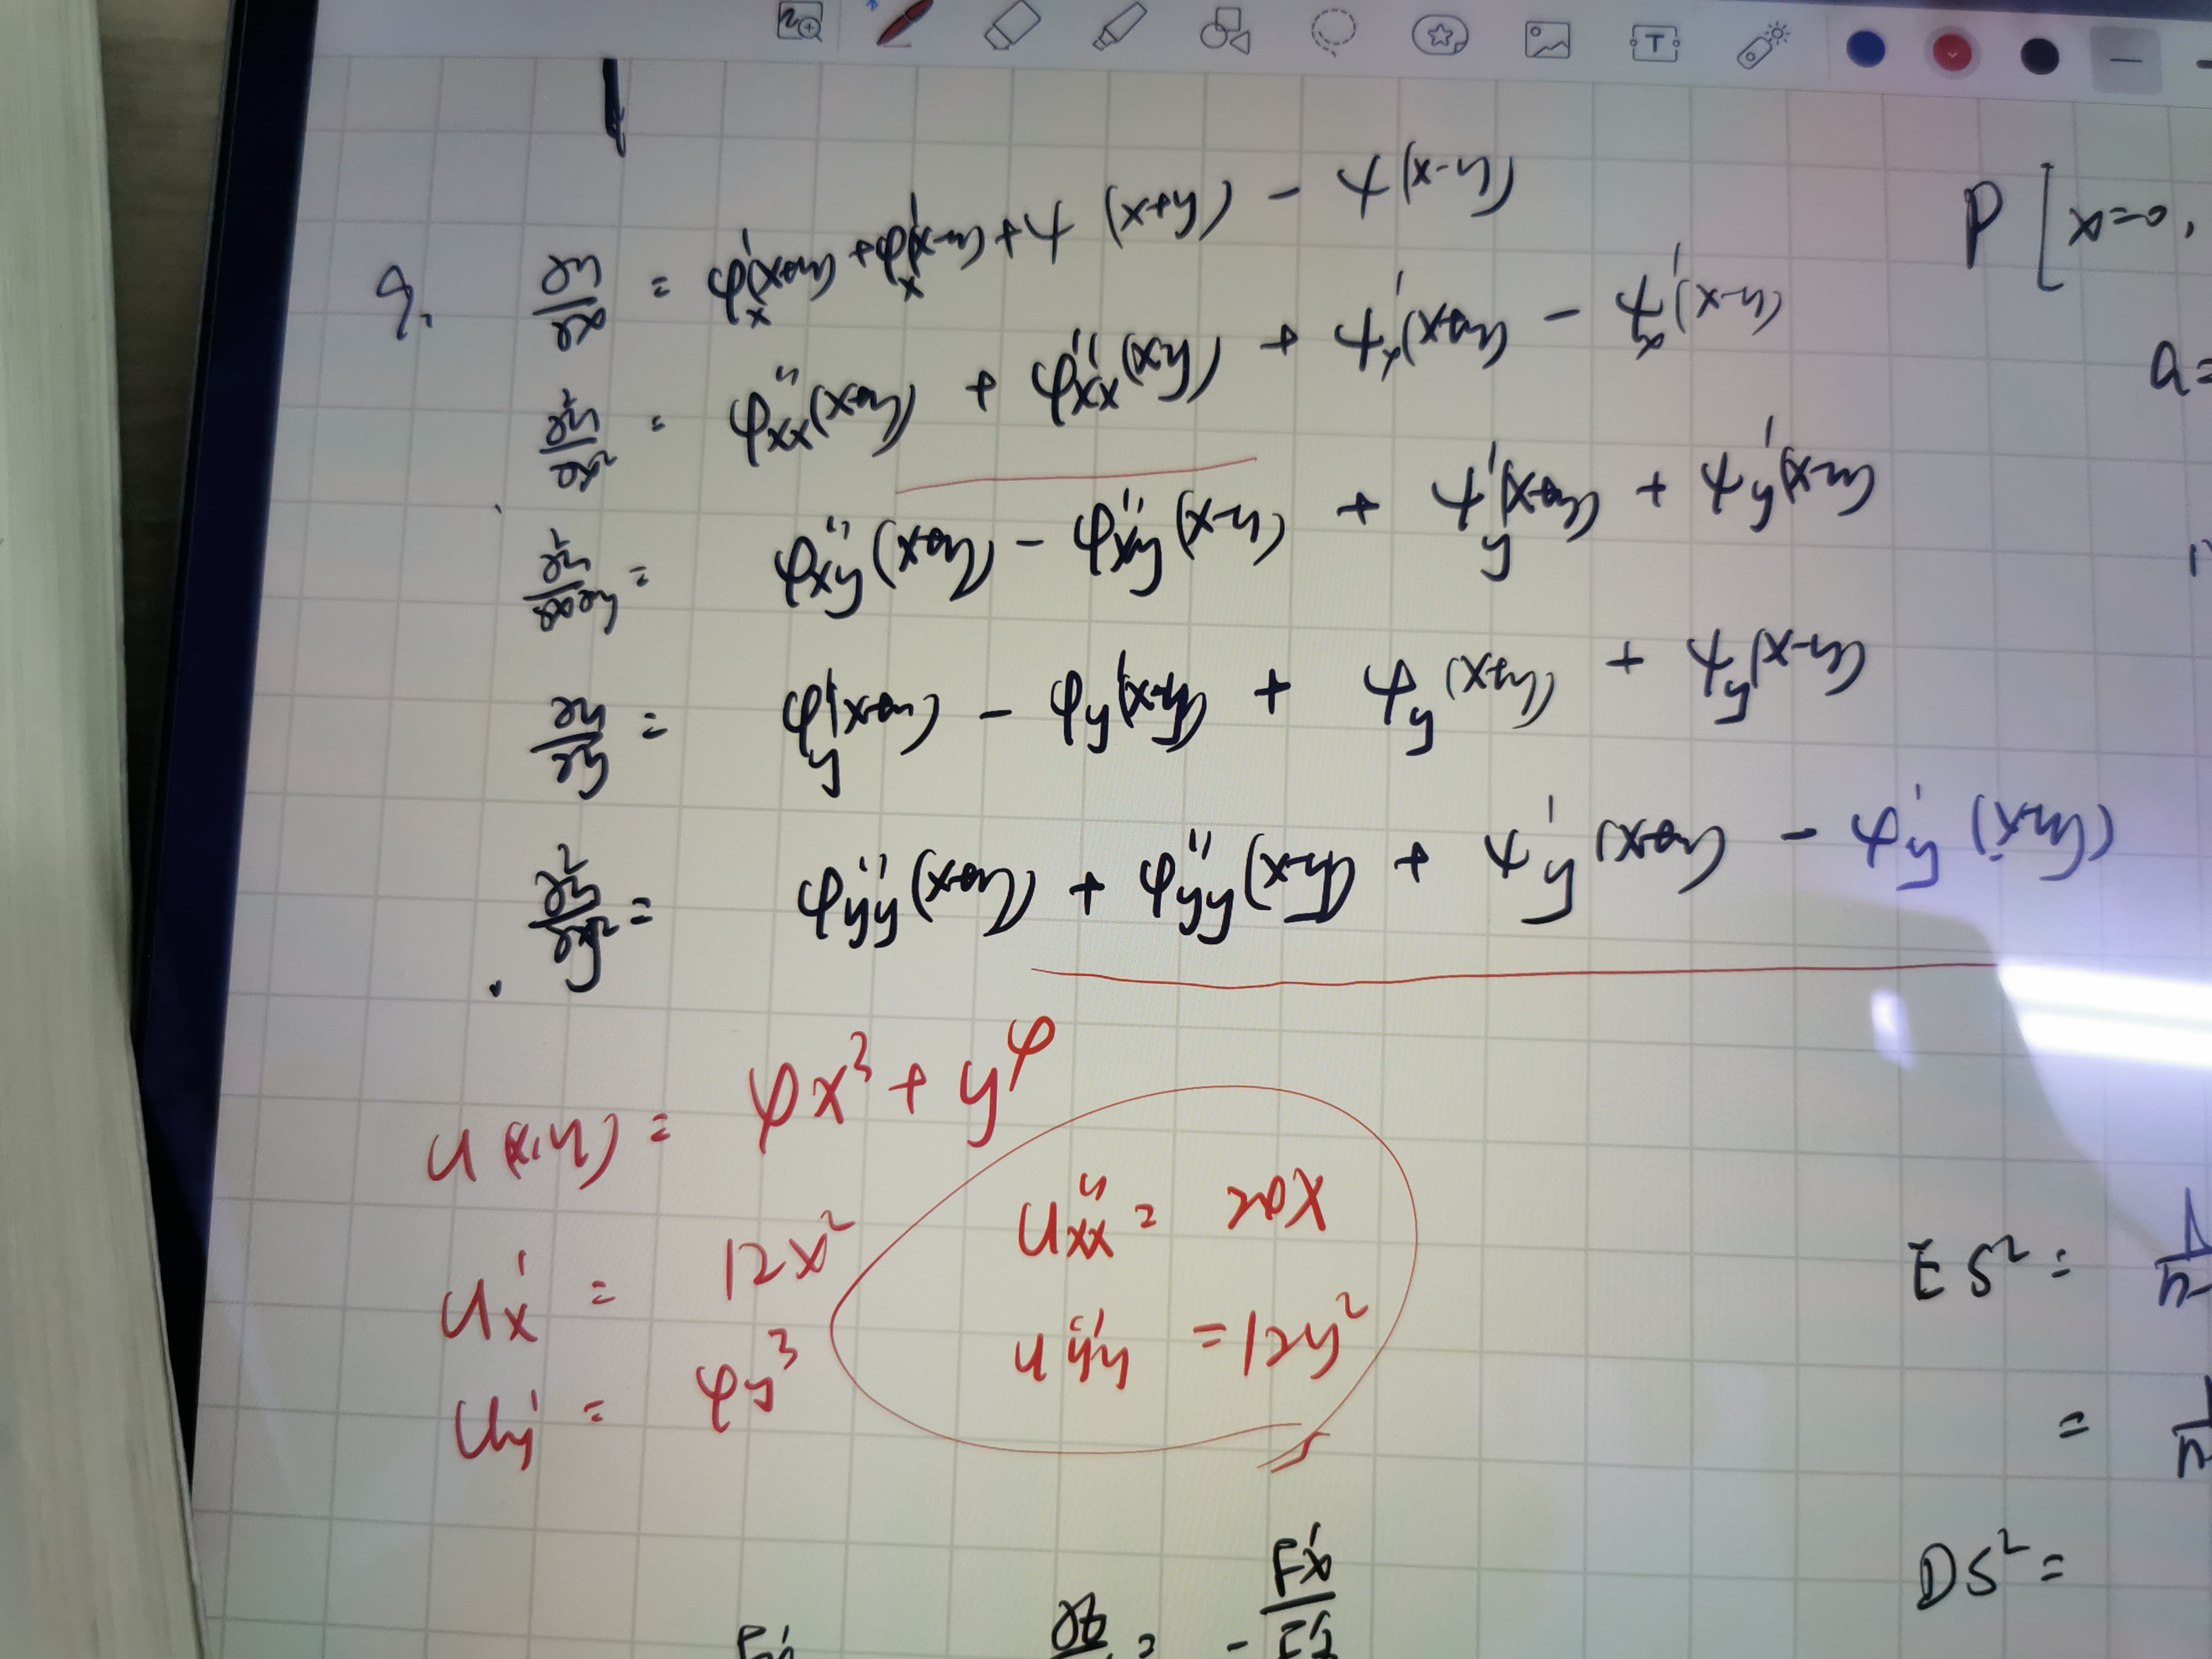 9. ∂u/∂x = φ'x(x+y) + φ'x(x-y) + ψ(x+y) - ψ(x-y)
∂²u/∂x² = φ''xx(x+y) + φ''xx(x-y) + ψ'x(x+y) - ψ'x(x-y)
∂²u/∂x∂y = φ''xy(x+y) - φ''xy(x-y) + ψ'y(x+y) + ψ'y(x-y)
∂u/∂y = φ'y(x+y) - φ'y(x-y) + ψy(x+y) + ψy(x-y)
∂²u/∂y² = φ''yy(x+y) + φ''yy(x-y) + ψ'y(x+y) - ψ'y(x-y)
u(x,y) = 4x³ + y⁴
u'x = 12x²
u'y = 4y³
u''xx = 20x
u''yy = 12y²
∂z = - F'x/F'z
P [x=0,
a=
ES² =
=
DS² =